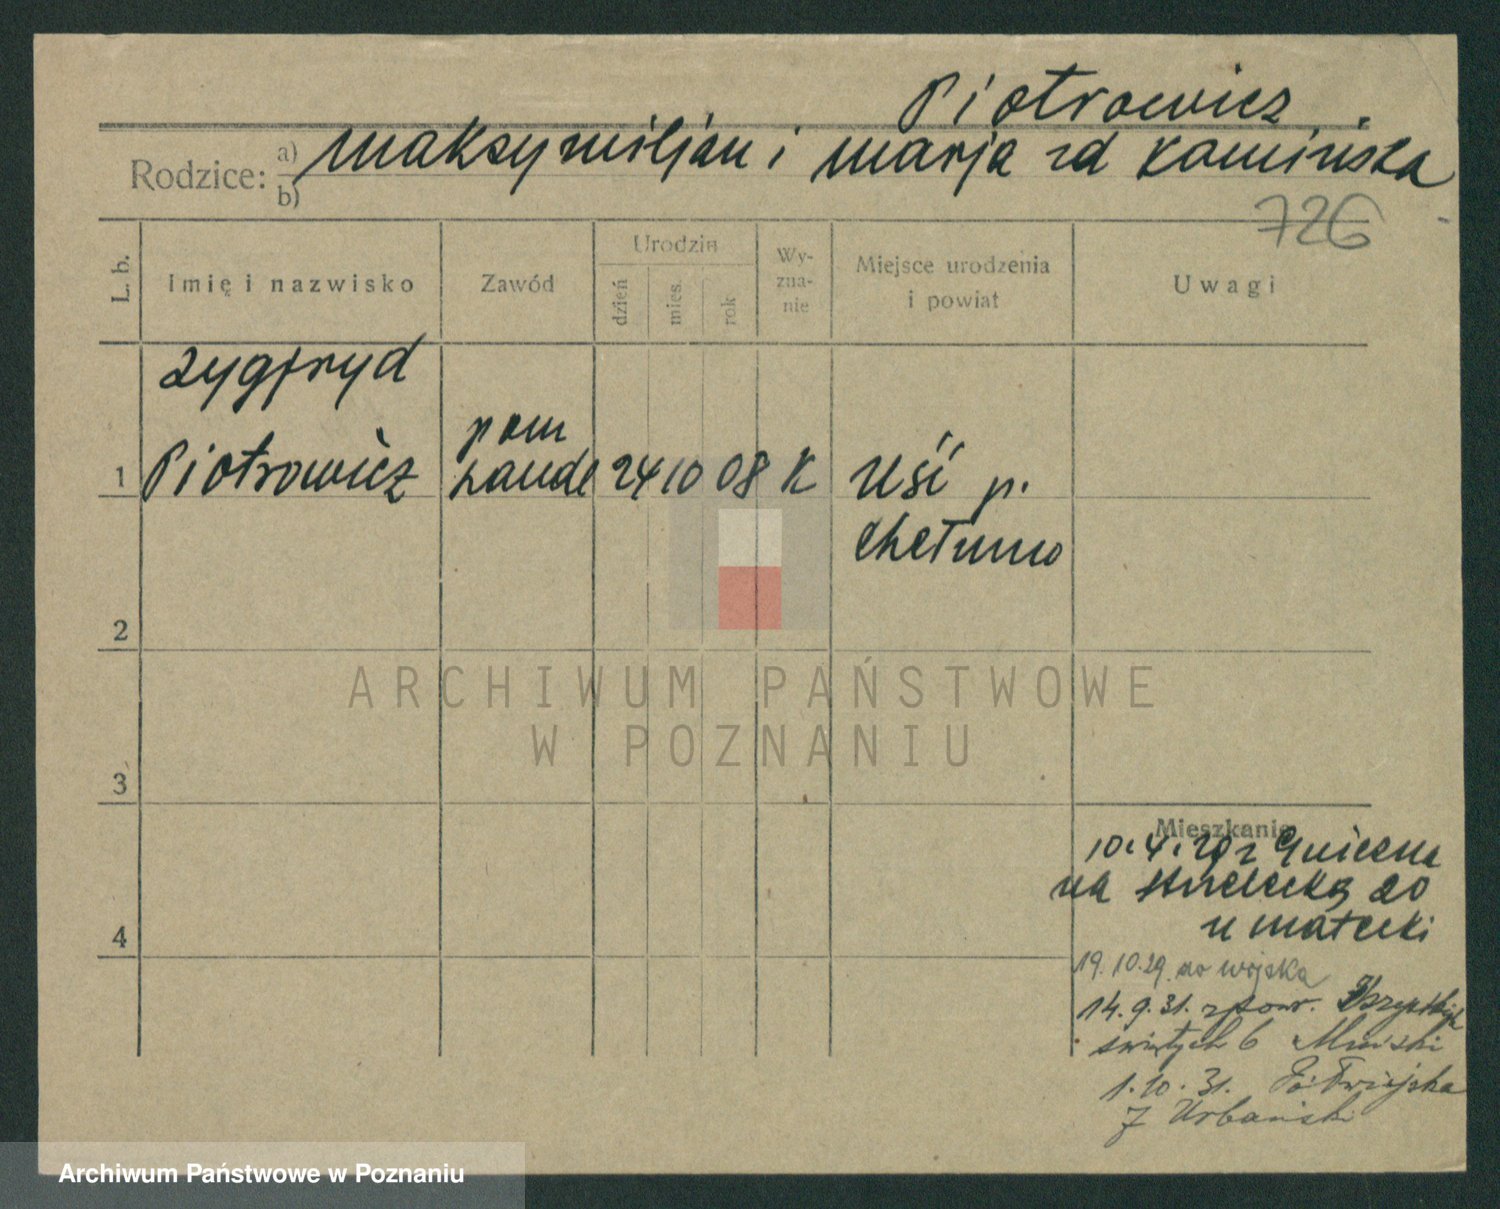 Piotrowicz
Rodzice: a) Maksymiljan i Marja zd Kamińska
b)
726
L. b.
Imię i nazwisko
Zawód
Urodzin
dzień
mies.
rok
Wy-
zna-
nie
Miejsce urodzenia
i powiat
Uwagi
Zygfryd
pom
1 Piotrowicz handl 24 10 08 K Uść p.
Chełmno
2
ARCHIWUM PAŃSTWOWE
W POZNANIU
3
Mieszkanie
10.4.29 z Gniezna
na Strzelecką 20
4
u Małecki
19.10.29 do wojska
14.9.31. z pow. Wszystkich
świętych 6
1.10.31. Półwiejska
7 Urbański
Archiwum Państwowe w Poznaniu